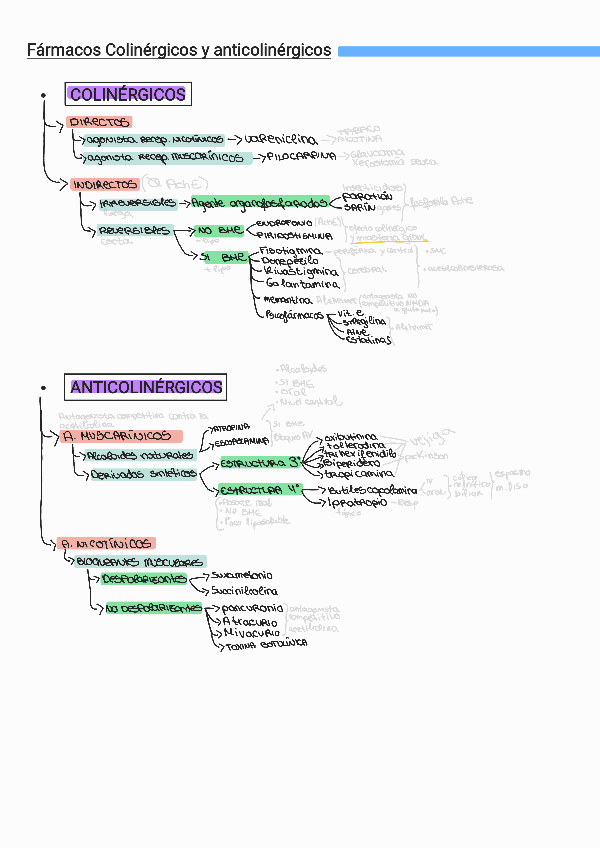 Fármacos Colinérgicos y anticolinérgicos
COLINÉRGICOS
DIRECTOS
agonista recep. nicotínicos → vareniclina → TABACO NICOTINA
agonista recep. muscarínicos → PILOCARPINA → Glaucoma
xerostomia severa
INDIRECTOS (⊖ AchE)
IRREVERSIBLES → Agente organofosforados
larga
Insecticidas
PARATIÓN
SARÍN
fosforila AchE
REVERSIBLES
corta
NO BHE
- lipo
EDROFONIO (AchE)
PIRIDOSTIGMINA
efecto colinérgico
y miastenia grave
SI BHE
+ lipo
Fisostigmina - periférica y central
Donepezilo
Rivastigmina
Galantamina
cerebral
• SNC
• acetilcolinesterasa
memantina Alzheimer (antagonista no
competitivo NMDA
Psicofármacos
vit. e
selegilina
AINE
Estatinas
• Alzheimer
ANTICOLINÉRGICOS
• Alcaloides
• SI BHE
• oral
• Nivel central
Antagonista competitivo contra la
acetilcolina
A. MUSCARÍNICOS
Alcaloides naturales
ATROPINA
ESCOPOLAMINA
SI BHE
bloqueo AV
Derivados sintéticos
ESTRUCTURA 3°
oxibutinina
tolterodina
trihexifenidilo
Biperideno
tropicamina
vejiga
parkinson
ESTRUCTURA 4°
Butilescopolamina
Ipratropio
IV
oral
cólico
nefrítico
biliar
espasmo
m. liso
tópico
• NO BHE
• Poco liposoluble
A. NICOTÍNICOS
BLOQUEANTES MUSCULARES
DESPOLARIZANTES
Suxametonio
Succinilcolina
NO DESPOLARIZANTES
pancuronio
Atracurio
Mivacurio
TOXINA BOTULÍNICA
antagonista
competitivo
acetilcolina